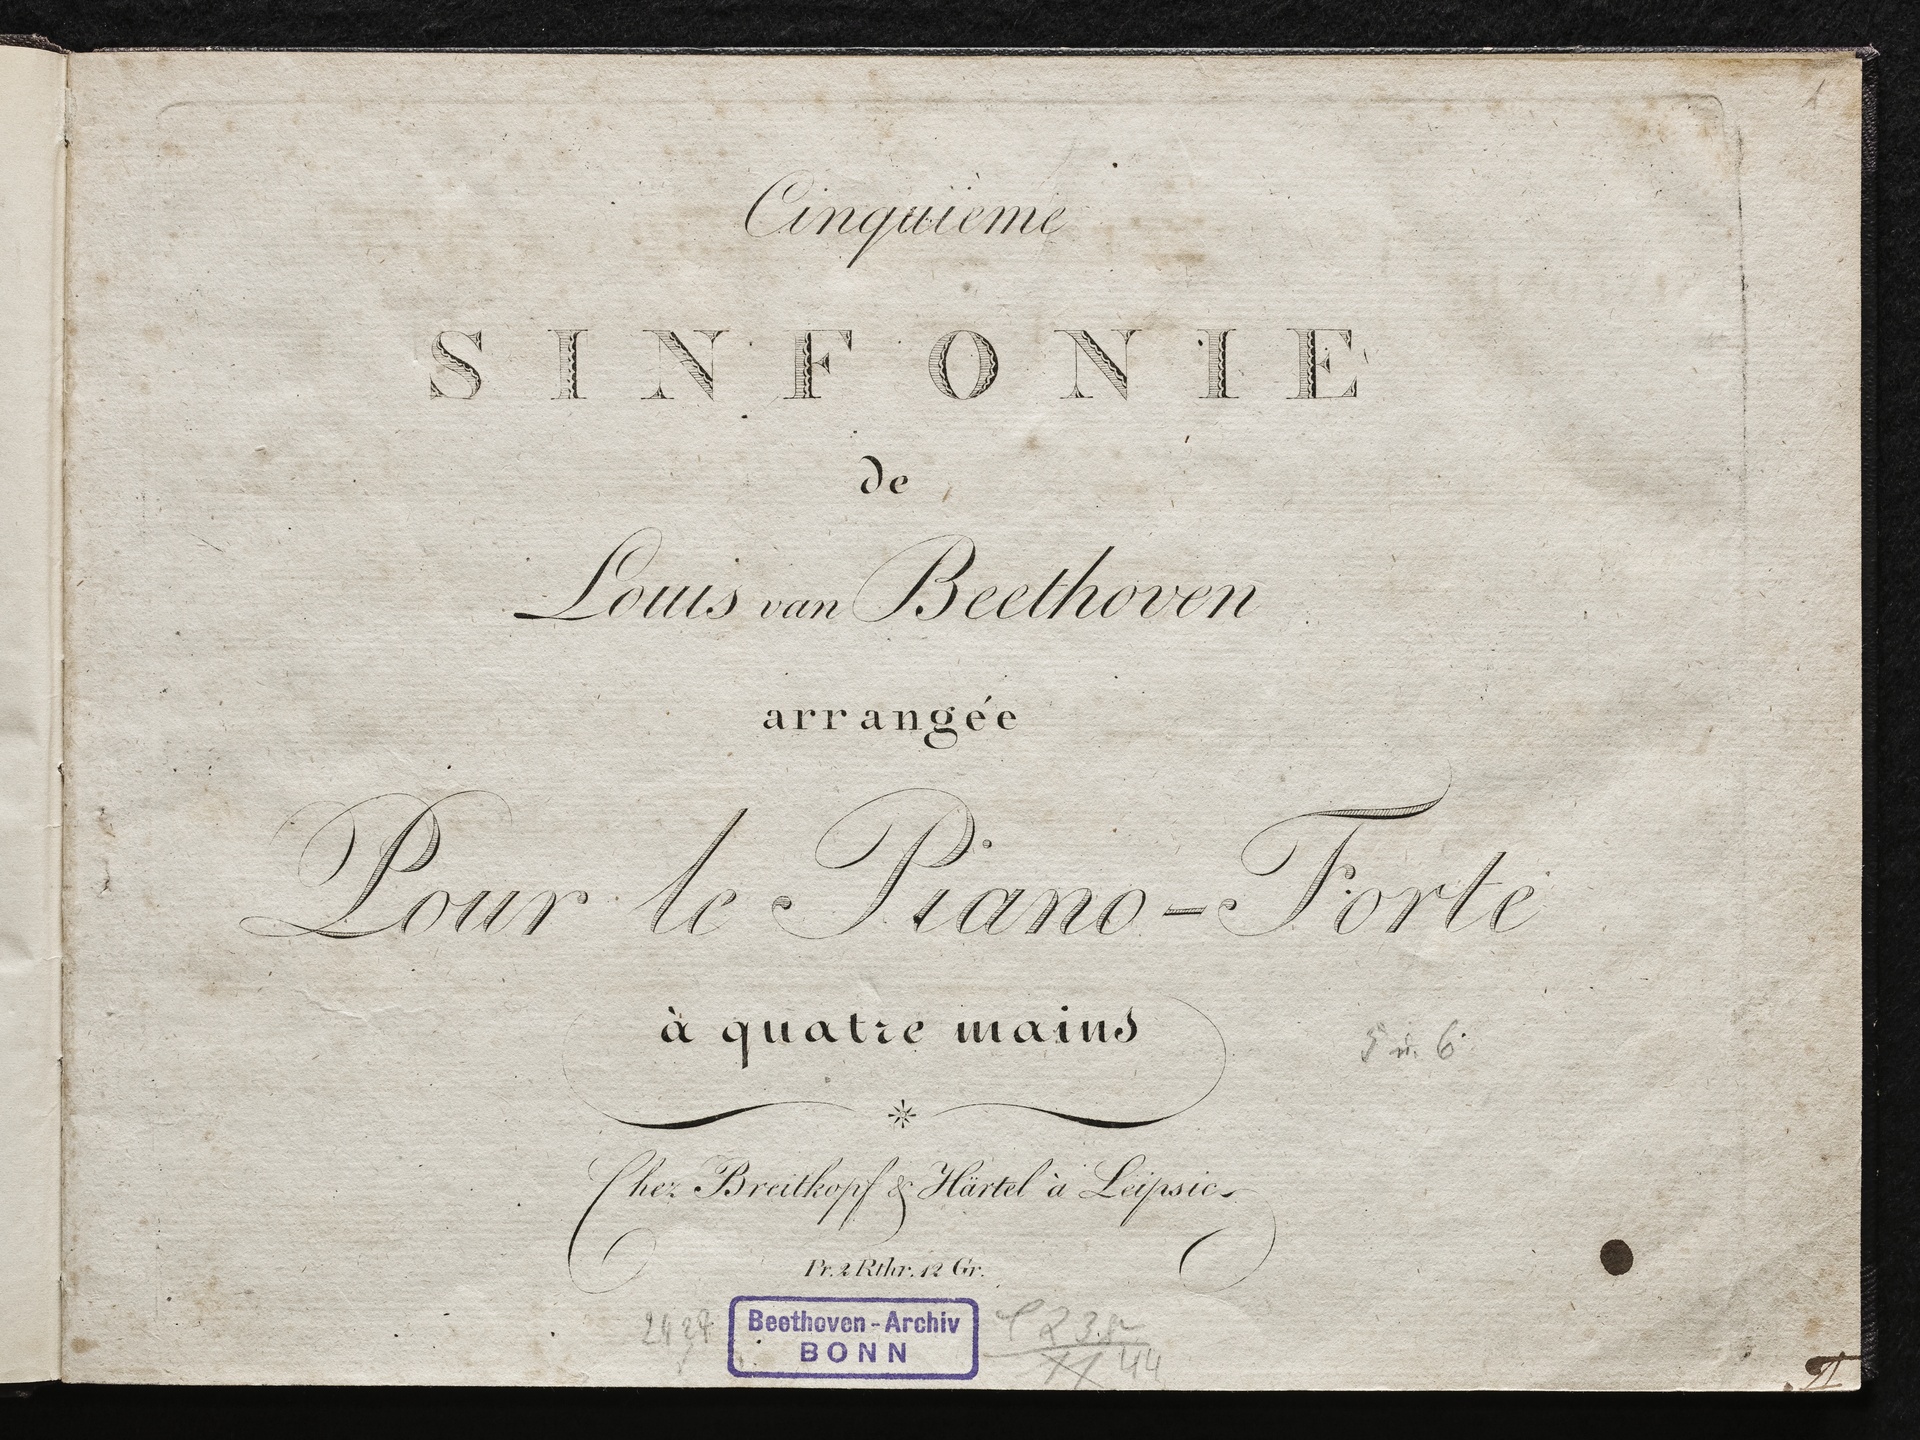 1
Cinquième
SINFONIE
de
Louis van Beethoven
arrangée
Pour le Piano-Forte
à quatre mains
5 u. 6
Chez Breitkopf & Härtel à Leipsic
Pr. 2 Rthr. 12 Gr.
Beethoven-Archiv
BONN
44